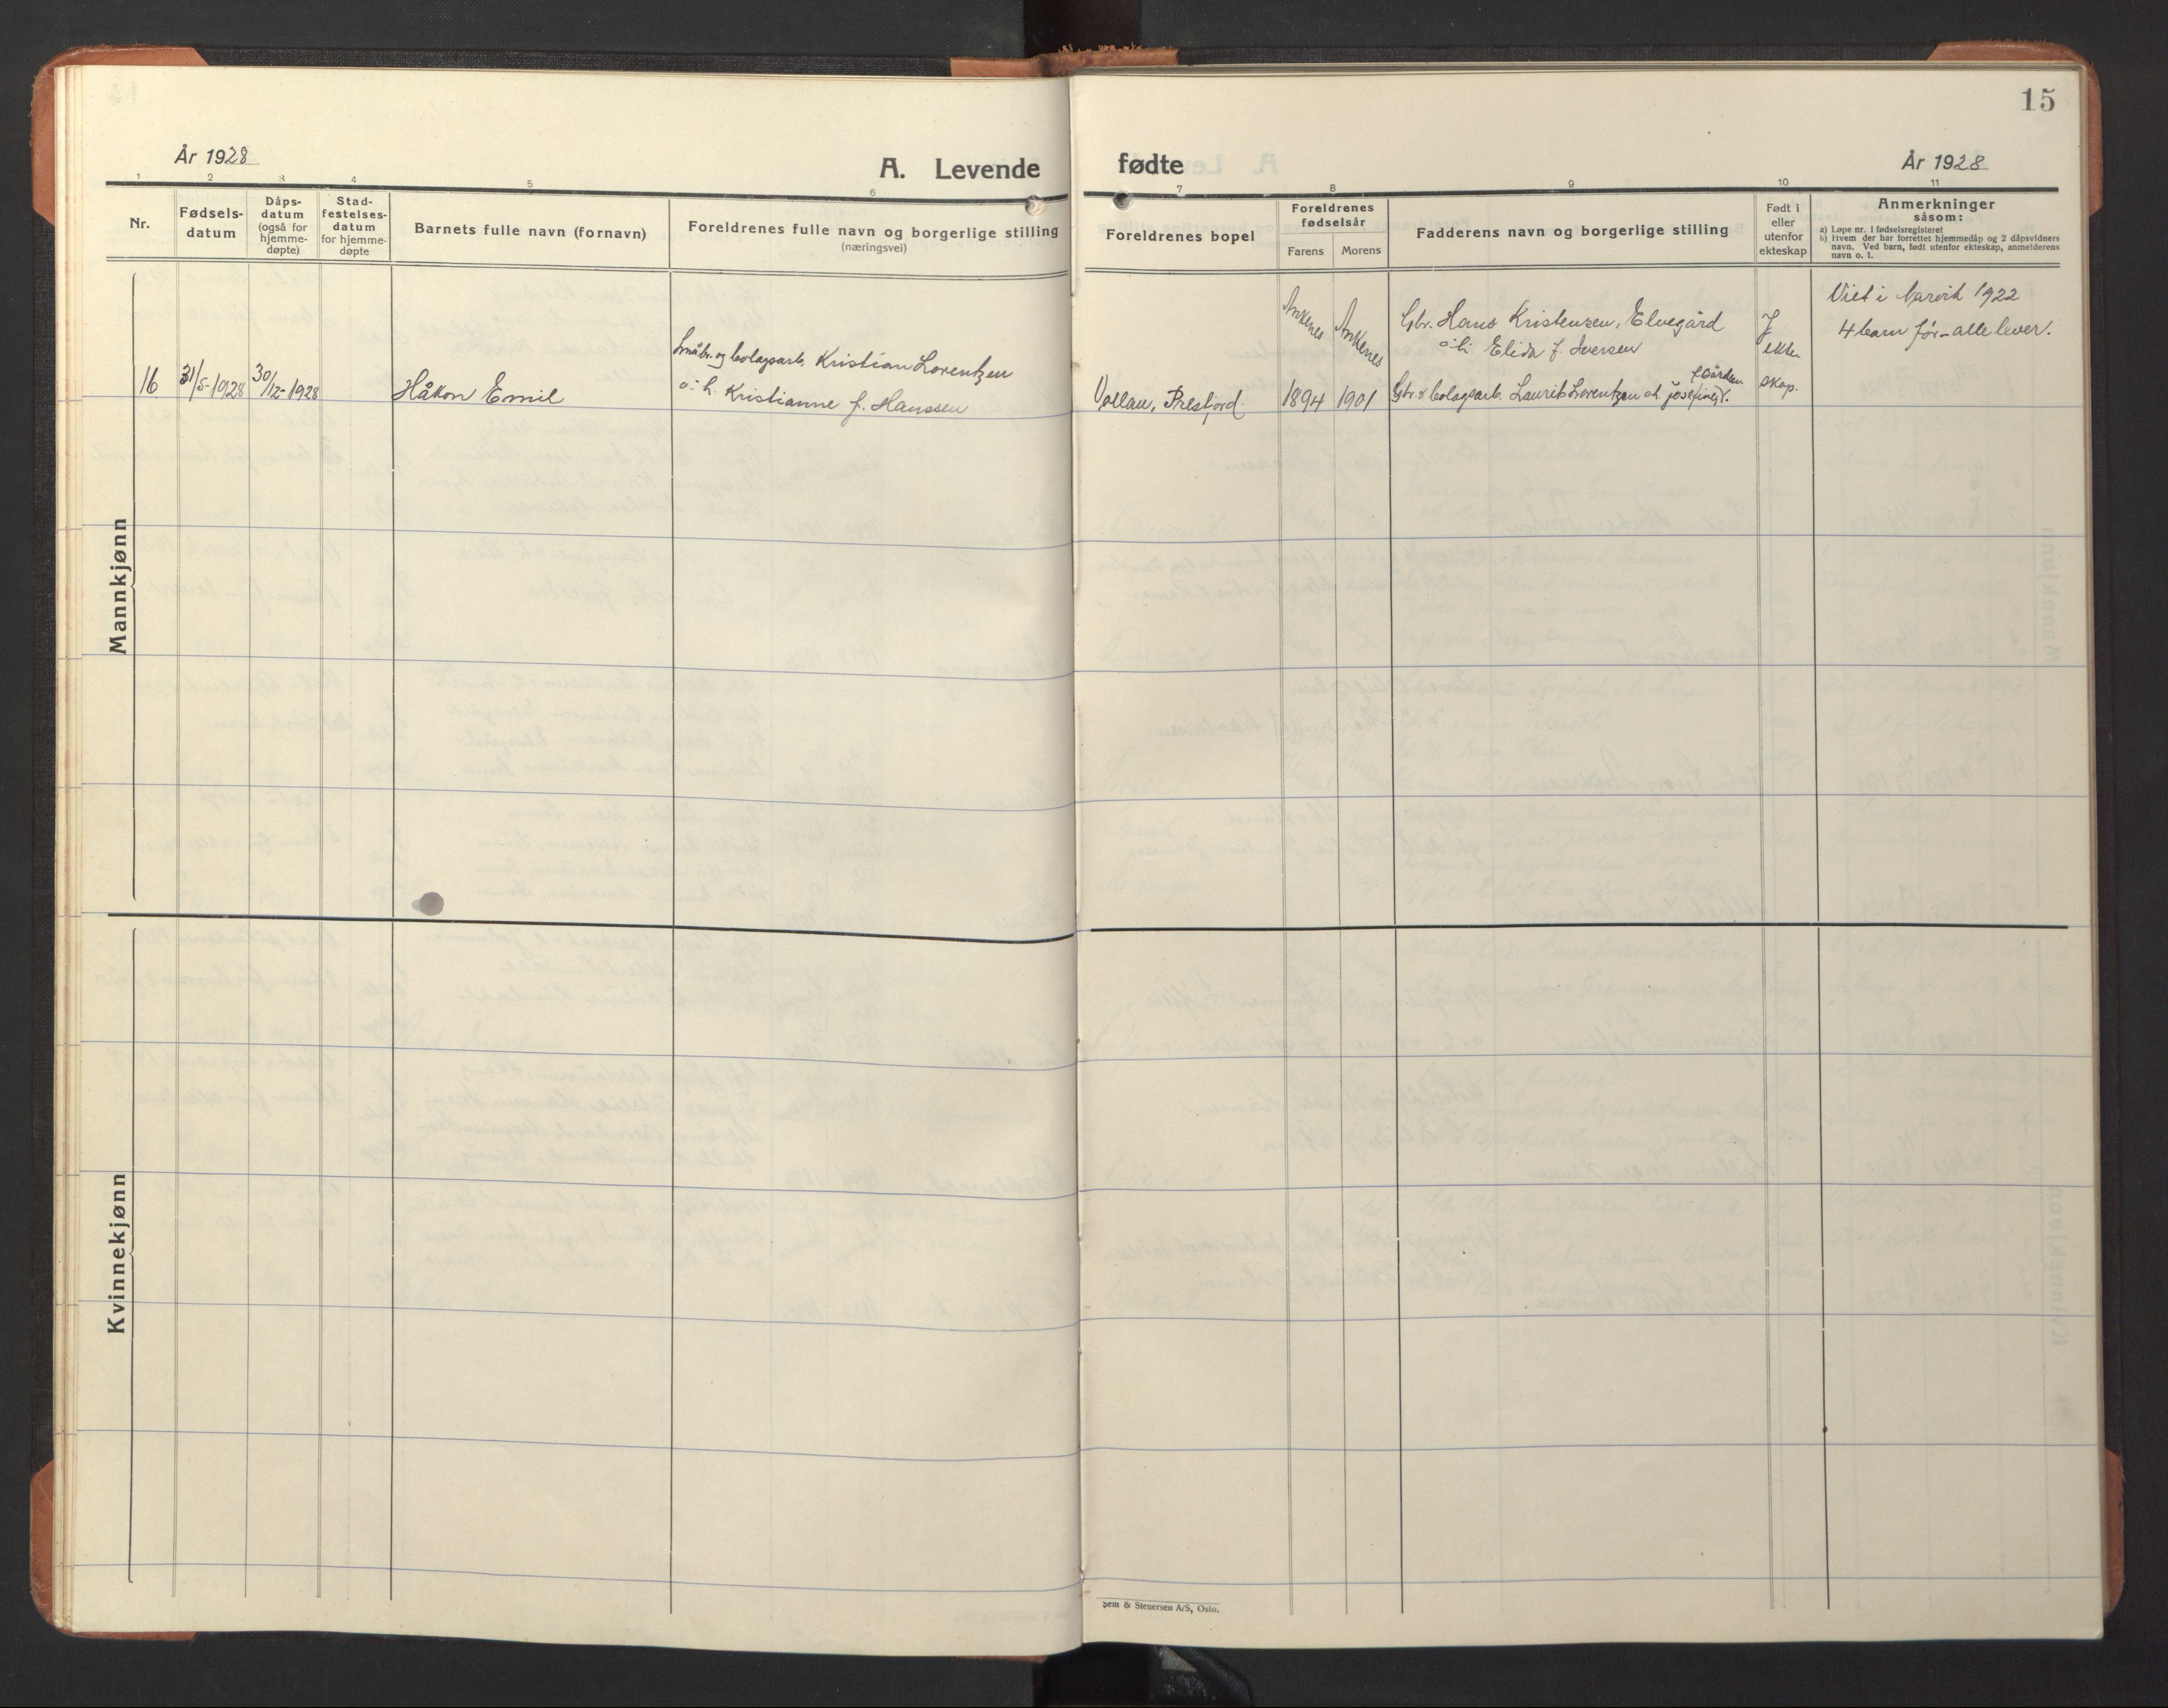 15
År 1928
A. Levende
fødte
År 1928
1 2 3 4 5 6 7 8 9 10 11
Nr.
Fødsels-
datum
Dåps-
datum
(også for
hjemme-
døpte)
Stad-
festelses-
datum
for hjemme-
døpte
Barnets fulle navn (fornavn)
Foreldrenes fulle navn og borgerlige stilling
(næringsvei)
Foreldrenes bopel
Foreldrenes
fødselsår
Farens
Morens
Fadderens navn og borgerlige stilling
Født i
eller
utenfor
ekteskap
Anmerkninger
såsom:
a) Løpe nr. i fødselsregisteret
b) Hvem der har forrettet hjemmedåp og 2 dåpsvidners
navn. Ved barn, født utenfor ekteskap, anmelderens
navn o. l.
Mannkjønn
16
31/5-1928
30/12-1928
Håkon Emil
Småbr. og bolagsarb. Kristian Lorentzen
o. h. Kristianne f. Hanssen
Ankenes
Ankenes
1894
1901
Gbr. Hans Kristensen, Elvegård
o. h. Elida f. Iversen
Gbr. & bolagsarb. Laurits Lorentzen o. h. Josefine
I
ekte
skap.
Viet i Narvik 1922
4 barn før - alle lever.
Kvinnekjønn
Sem & Stenersen A/S, Oslo.